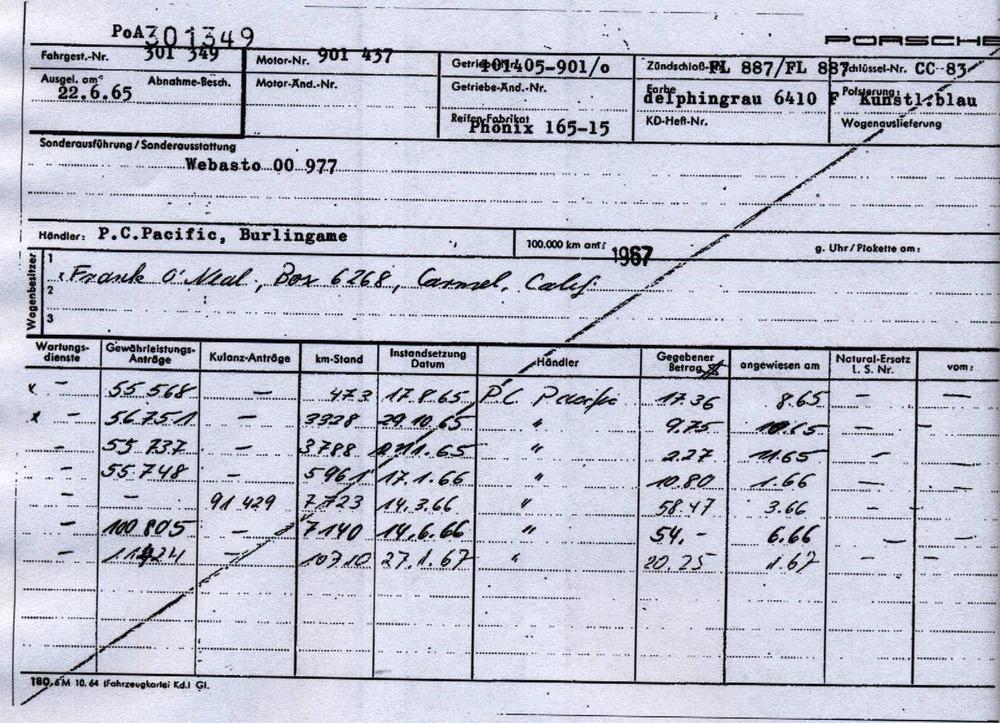 PoA 301349
PORSCHE
Fahrgest.-Nr. 301 349 Motor-Nr. 901 437 101405-901/o FL 887/FL 887 Schlüssel-Nr. CC 83
Ausgel. am: 22.6.65 Abnahme-Besch. Motor-Änd.-Nr. Getriebe-Änd.-Nr. Farbe delphingrau 6410 F Polsterung: Kunstl.blau
Reifen-Fabrikat Phönix 165-15 KD-Heft-Nr. Wagenauslieferung
Sonderausführung/Sonderausstattung
Webasto 00 977
Händler: P.C.Pacific, Burlingame 100.000 km am: 1967 g. Uhr/Plakette am:
Wagenbesitzer
1 Frank O'Neal, Box 6268, Carmel, Calif.
2
3
Wartungs-dienste Gewährleistungs-Anträge Kulanz-Anträge km-Stand Instandsetzung Datum Händler Gegebener Betrag $ angewiesen am Natural-Ersatz L. S. Nr. vom:
x - 55 568 - 473 17.8.65 P.C Pacific 17.36 8.65 - -
x - 56.751 - 3328 29.10.65 " 9.75 10.65 - -
- 55 737 - 3788 65 " 2.27 11.65 - -
- 55 748 - 5961 17.1.66 " 10.80 1.66 - -
- - 91 429 7723 14.3.66 " 58.47 3.66 - -
- 100 805 - 7140 14.6.66 " 54.- 6.66 - -
- - 10710 27.1.67 " 20.25 1.67 - -
180.6 M 10. 64 (Fahrzeugkartei Kd.) Gl.